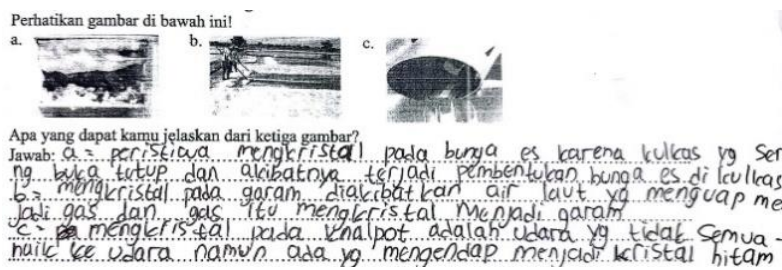 Perhatikan gambar di bawah ini!
a. b. c.
Apa yang dapat kamu jelaskan dari ketiga gambar?
Jawab: a = peristiwa mengkristal pada bunga es karena kulkas yg ser
ng buka tutup dan akibatnya terjadi pembentukan bunga es di kulkas
b = mengkristal pada garam diakibatkan air laut yg menguap me
jadi gas dan gas itu mengkristal menjadi garam
c = mengkristal pada knalpot adalah udara yg tidak semua -
naik ke udara namun ada yg mengendap menjadi kristal hitam